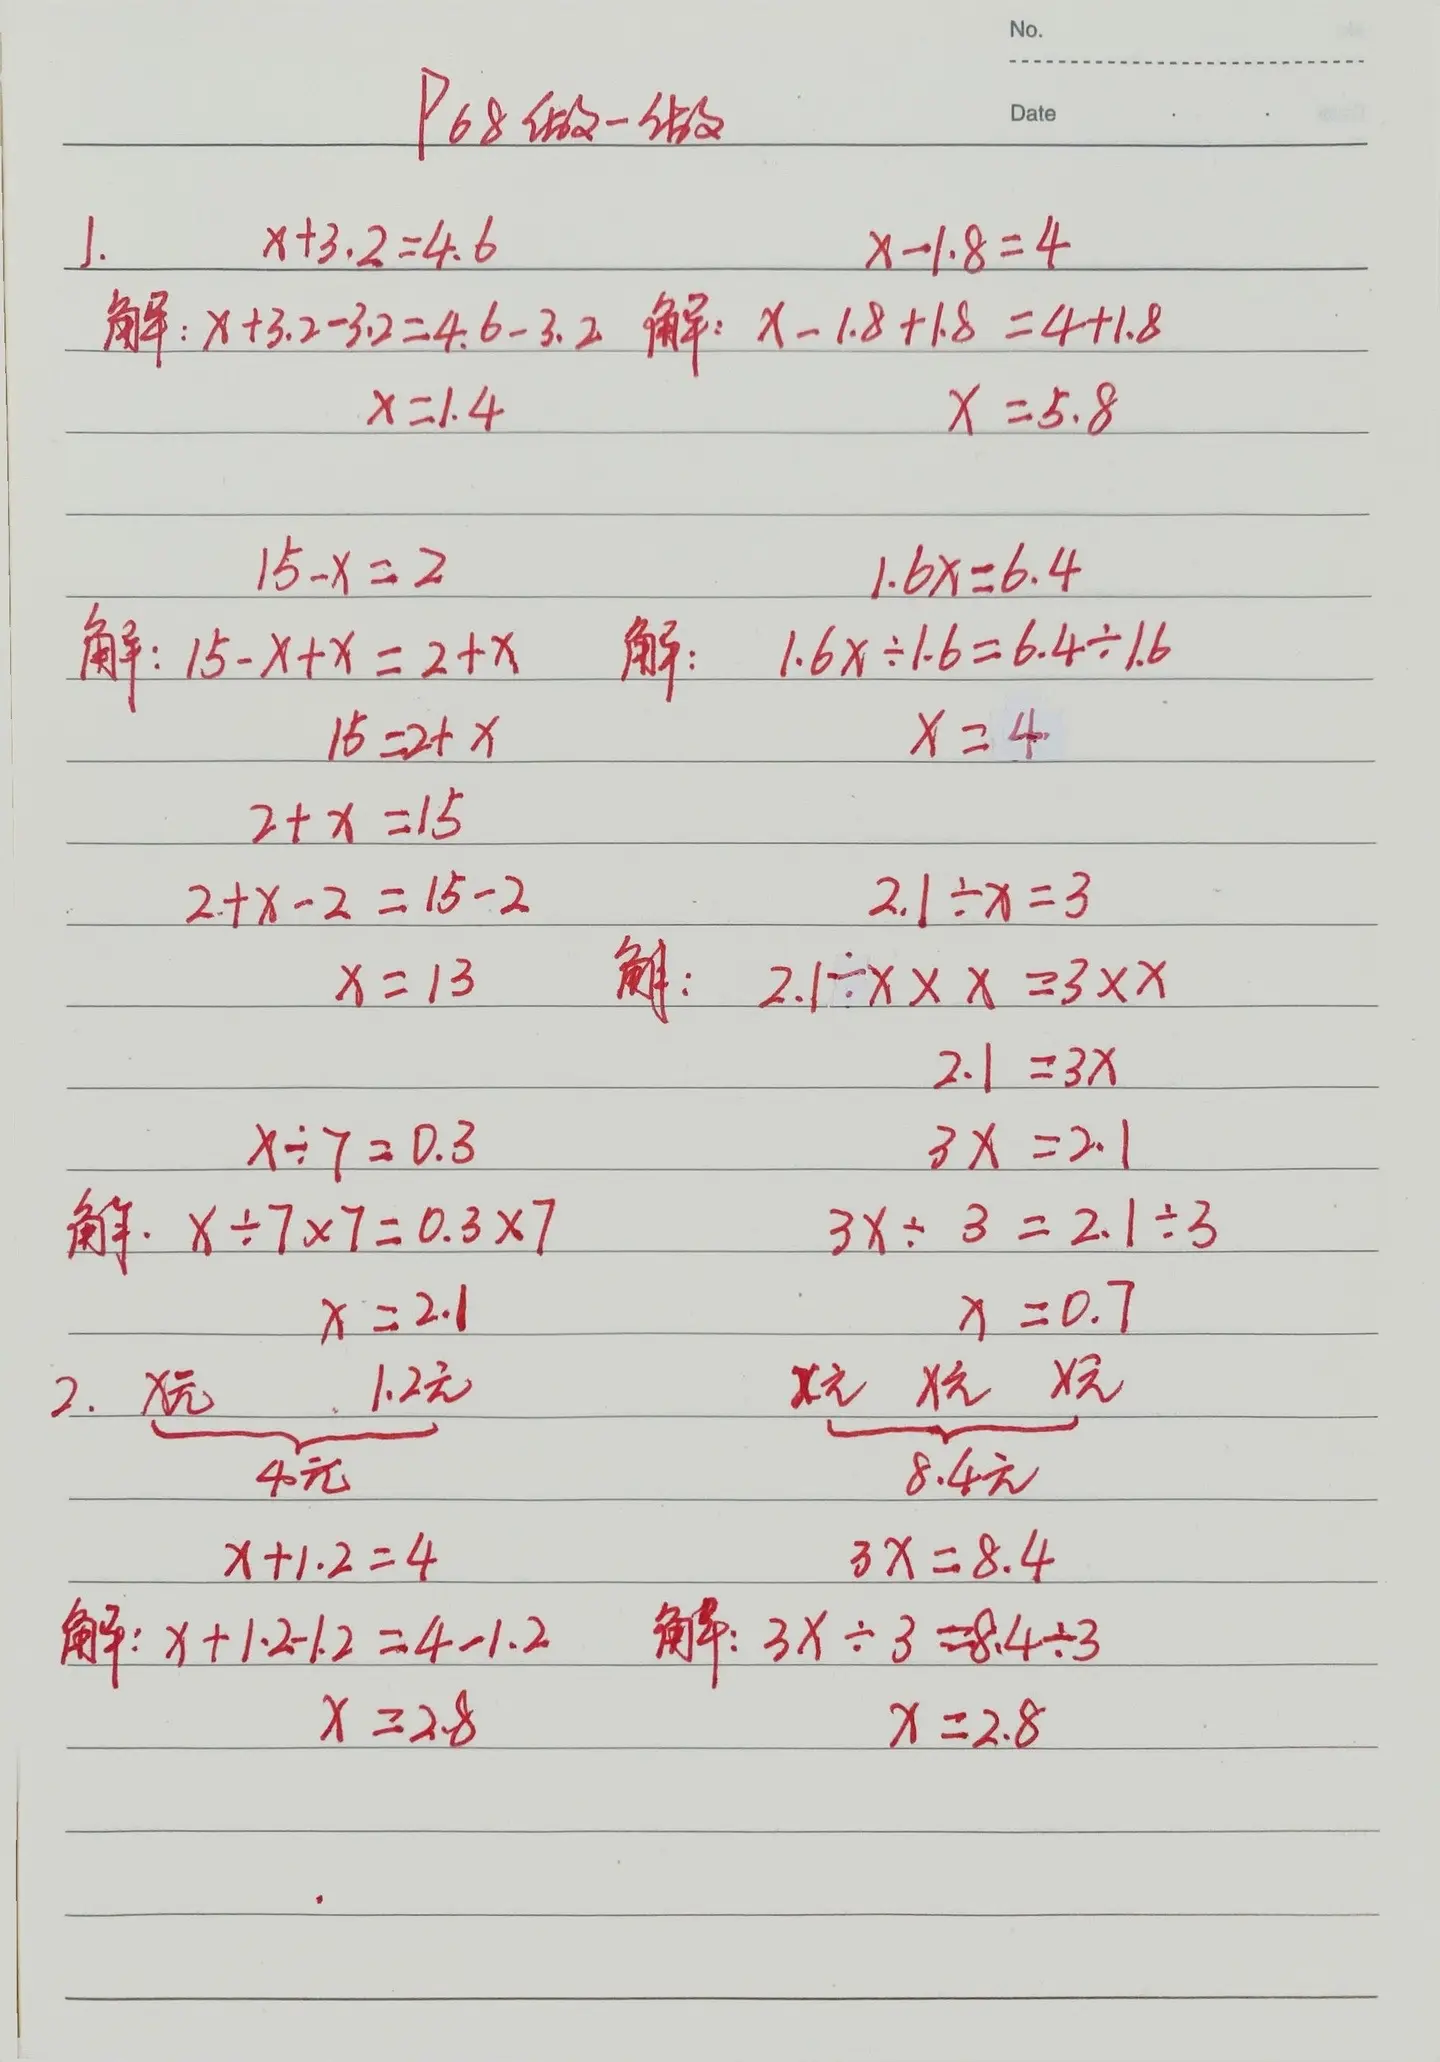 No.
Date
P68 做一做
1. x+3.2=4.6 x-1.8=4
解: x+3.2-3.2=4.6-3.2 解: x-1.8+1.8=4+1.8
x=1.4 x=5.8
15-x=2 1.6x=6.4
解: 15-x+x=2+x 解: 1.6x÷1.6=6.4÷1.6
15=2+x x=4
2+x=15
2+x-2=15-2 2.1÷x=3
x=13 解: 2.1÷x×x=3×x
2.1=3x
x÷7=0.3 3x=2.1
解. x÷7×7=0.3×7 3x÷3=2.1÷3
x=2.1 x=0.7
2. x元 1.2元 x元 x元 x元
4元 8.4元
x+1.2=4 3x=8.4
解: x+1.2-1.2=4-1.2 解: 3x÷3=8.4÷3
x=2.8 x=2.8